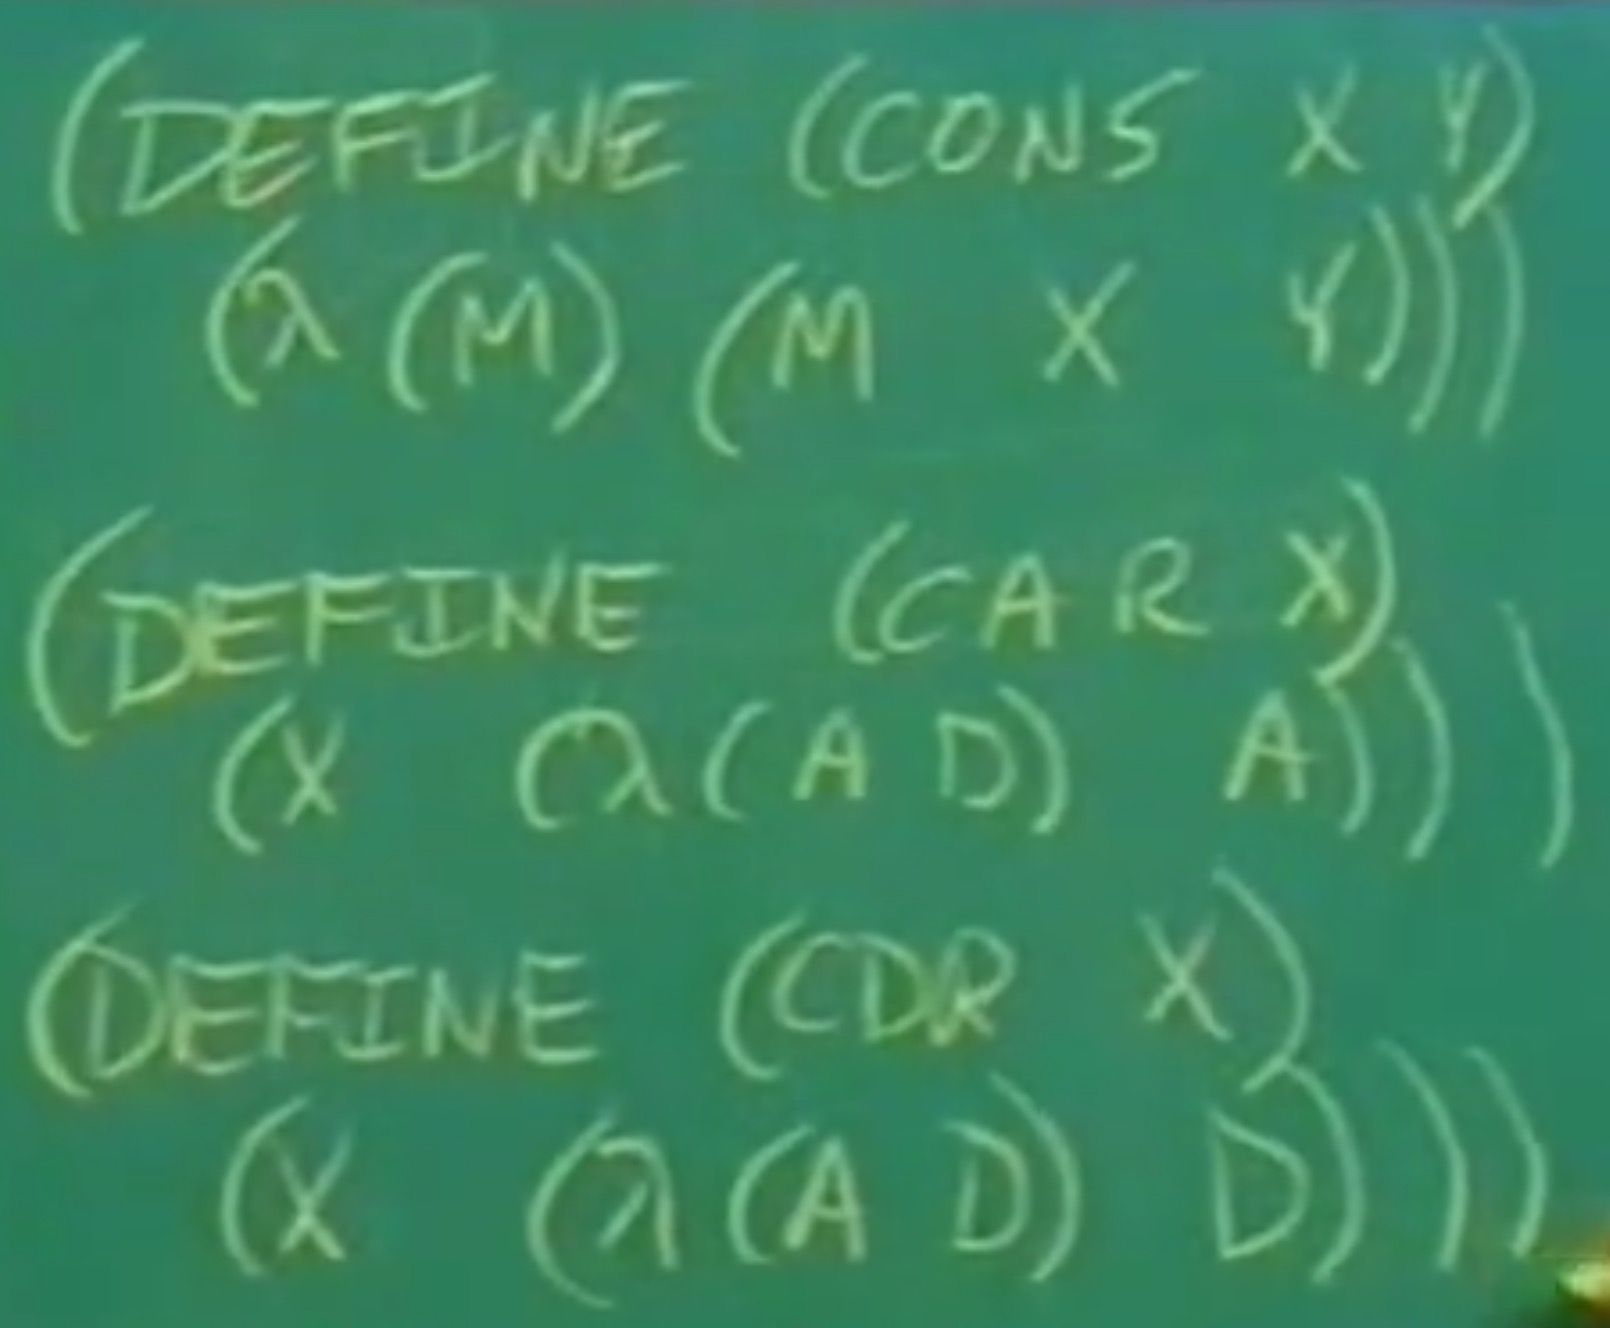 (DEFINE (CONS X Y)
(λ (M) (M X Y)))
(DEFINE (CAR X)
(X (λ (A D) A)))
(DEFINE (CDR X)
(X (λ (A D) D)))